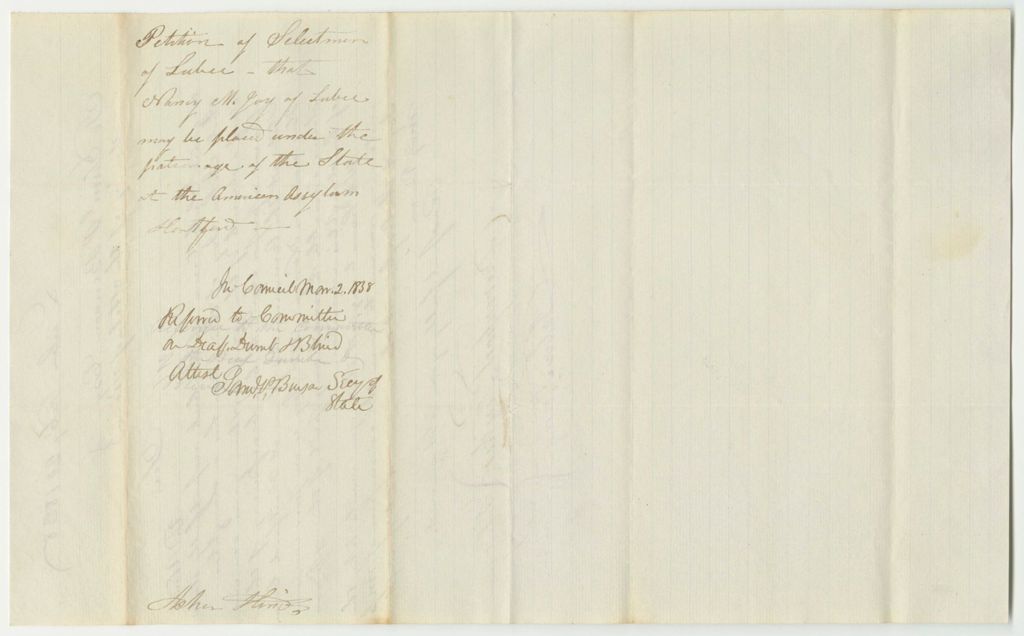 Petition of Selectmen
of Lubec - that
Nancy M. Joy of Lubec
may be placed under the
patronage of the State
at the American Assylum
Hartford -
In Council Mar. 2. 1838
Referred to Committee
on Deaf, Dumb & Blind
Attest
Saml P. Benson Secy of
State